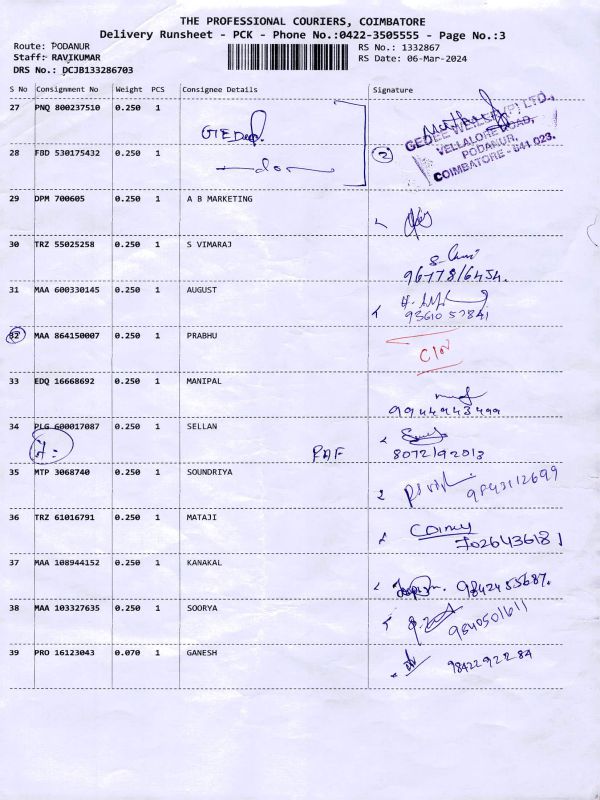 THE PROFESSIONAL COURIERS, COIMBATORE
Delivery Runsheet - PCK - Phone No.:0422-3505555 - Page No.:3
Route: PODANUR
Staff: RAVIKUMAR
DRS No.: DCJB133286703
RS No.: 1332867
RS Date: 06-Mar-2024
S No Consignment No Weight PCS Consignee Details Signature
27 PNQ 800237510 0.250 1
GEDEE WEILER (P) LTD.,
VELLALORE ROAD,
PODANUR,
COIMBATORE - 641 023.
28 FBD 530175432 0.250 1 -do- 2
29 DPM 700605 0.250 1 A B MARKETING
30 TRZ 55025258 0.250 1 S VIMARAJ
31 MAA 600330145 0.250 1 AUGUST
9361057841
32 MAA 864150007 0.250 1 PRABHU
33 EDQ 16668692 0.250 1 MANIPAL
9944943499
34 PLG 600017087 0.250 1 SELLAN
8072192013
35 MTP 3068740 0.250 1 SOUNDRIYA
9843112699
36 TRZ 61016791 0.250 1 MATAJI
7026436181
37 MAA 108944152 0.250 1 KANAKAL
9842455687.
38 MAA 103327635 0.250 1 SOORYA
9840501611
39 PRO 16123043 0.070 1 GANESH
9842292284